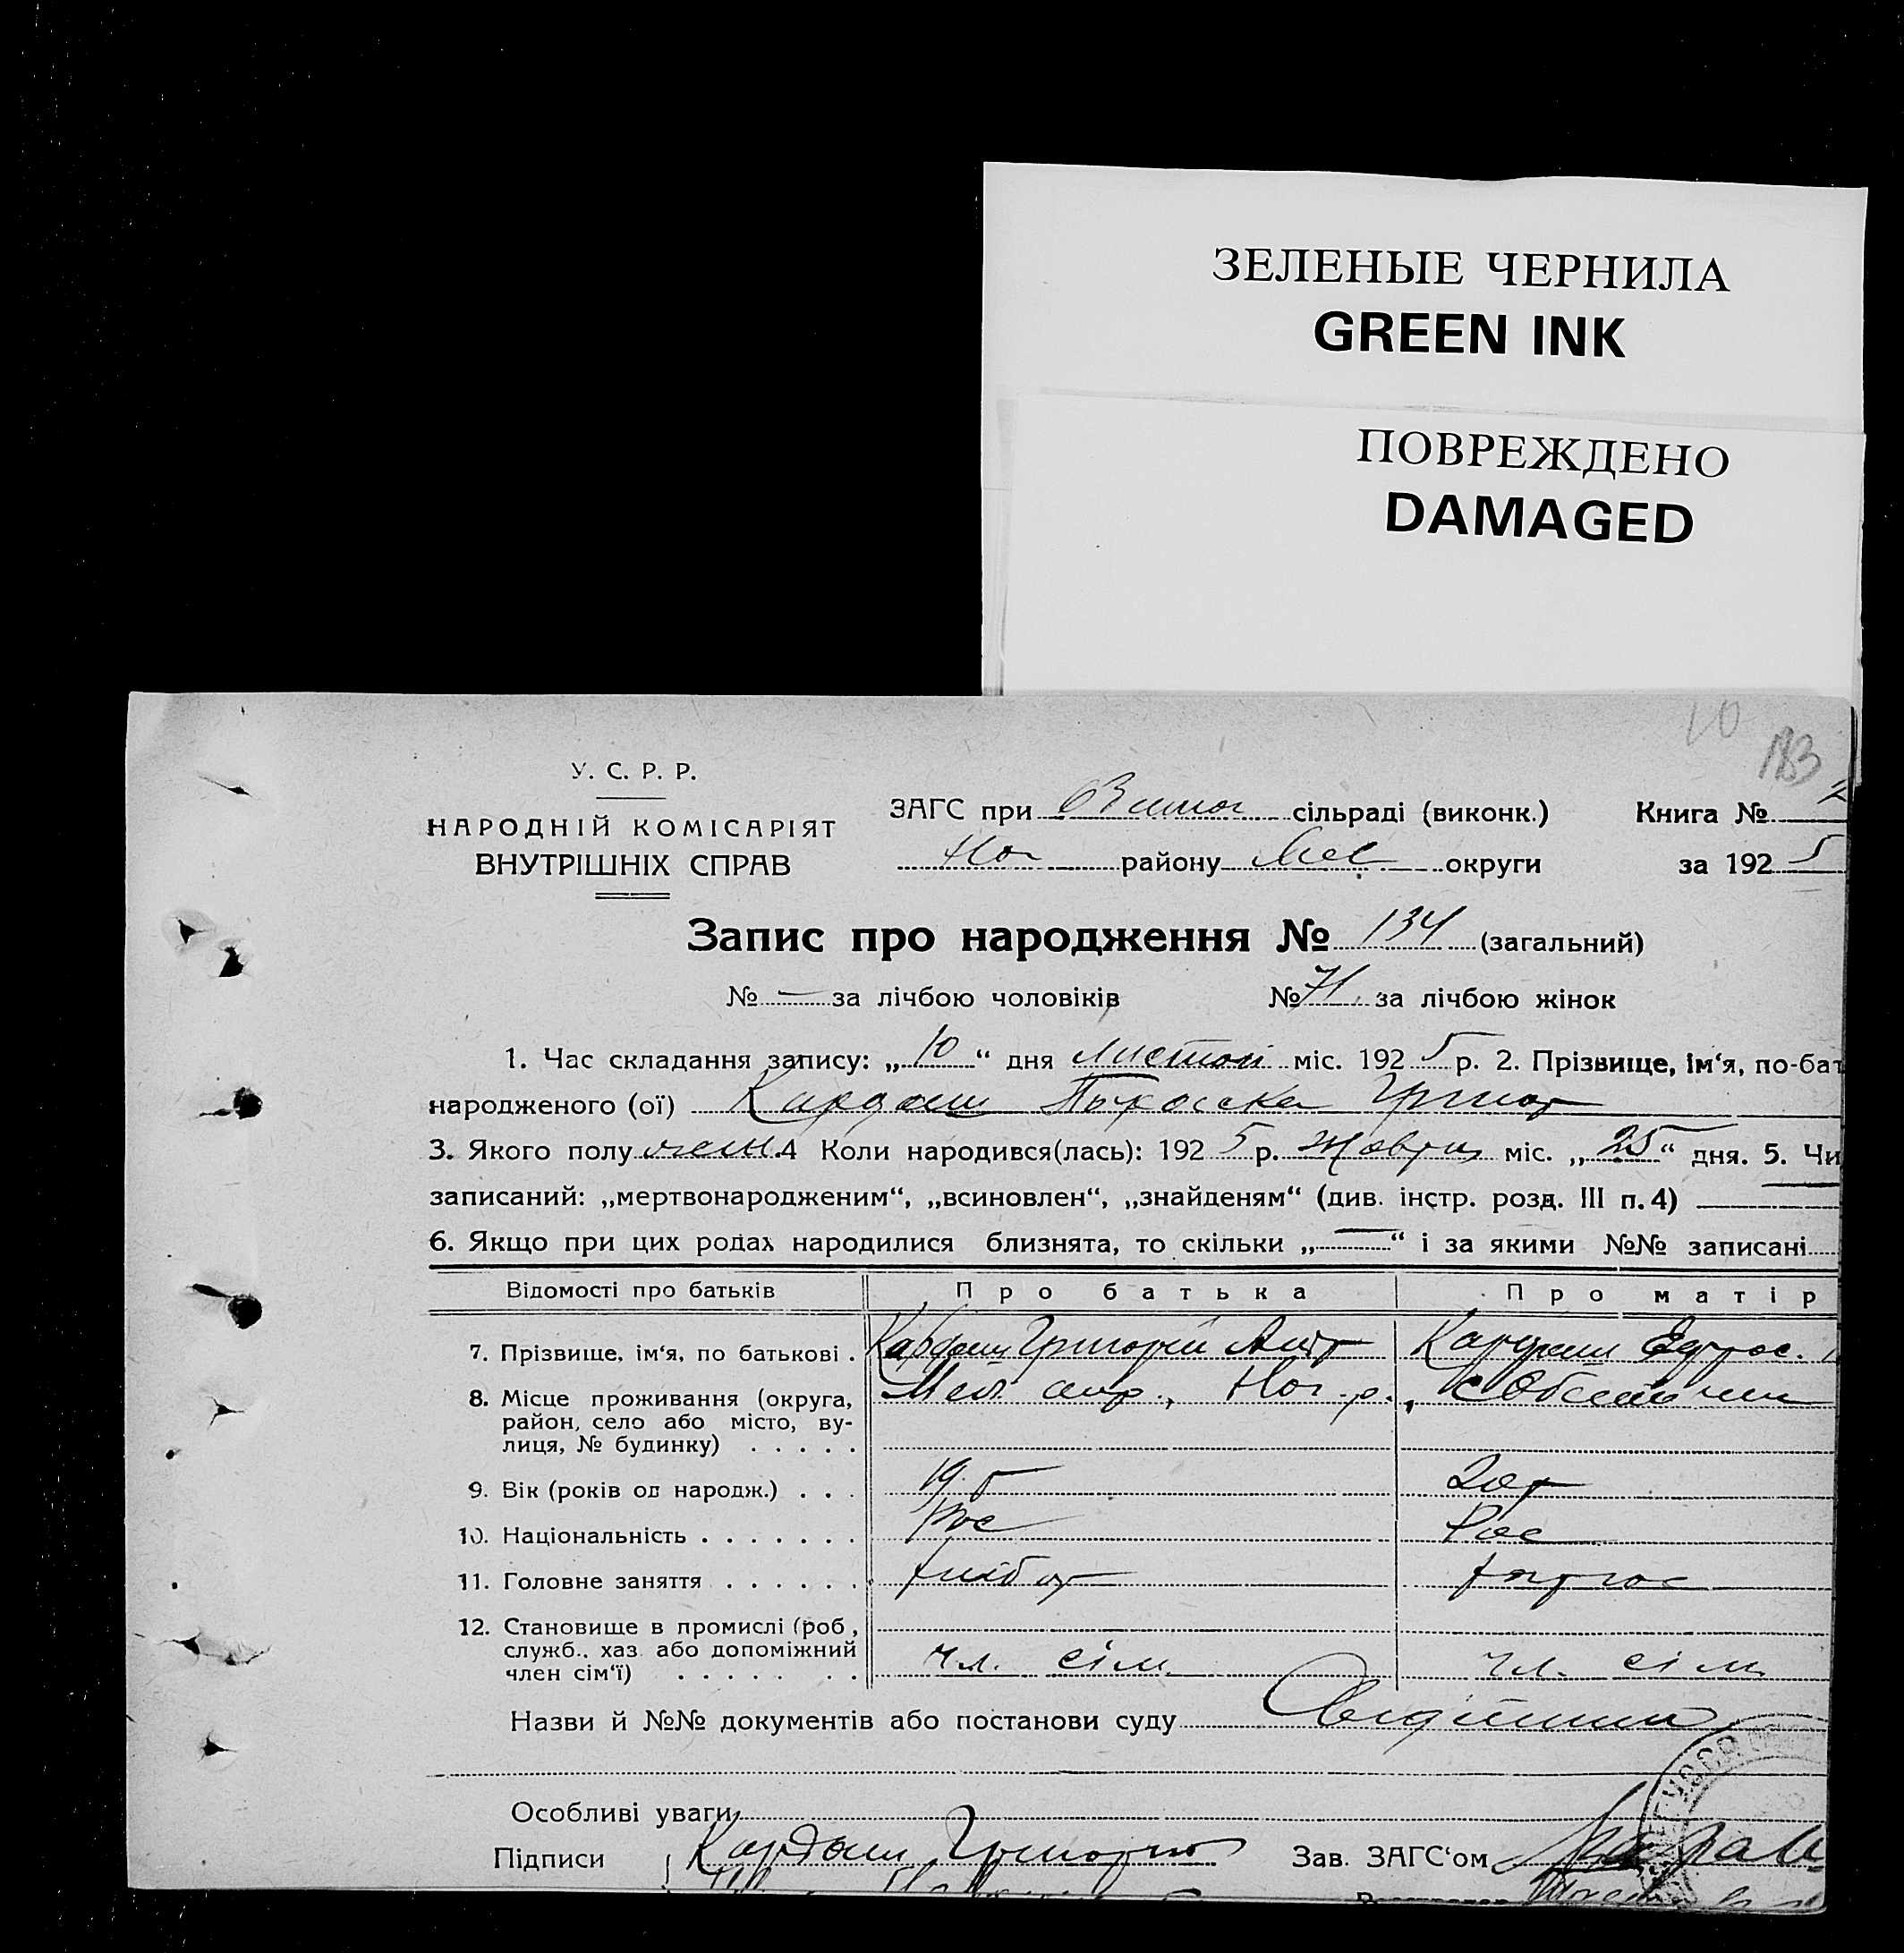 ЗЕЛЕНЫЕ ЧЕРНИЛА
GREEN INK
ПОВРЕЖДЕНО
DAMAGED
10
183
У. С. Р. Р.
НАРОДНІЙ КОМІСАРІЯТ
ВНУТРІШНІХ СПРАВ
ЗАГС при сільраді (виконк.) Книга №
Ног району Мел округи за 192 5
Запис про народження № 134 (загальний)
№ — за лічбою чоловіків № 71 за лічбою жінок
1. Час складання запису: „ 10 “ дня листоп міс. 192 5 р. 2. Прізвище, ім‘я, по-бат
народженого (ої) Кардаш Параска Григор
3. Якого полу 4 Коли народився(лась): 192 5 р. Жовтня міс. „ 25 “ дня. 5. Чи
записаний: „мертвонародженим“, „всиновлен“, „знайденям“ (див. інстр. розд. III п. 4)
6. Якщо при цих родах народилися близнята, то скільки „ — “ і за якими №№ записані
Відомості про батьків Про батька Про матір
7. Прізвище, ім‘я, по батькові . Кардаш Григорій Кардаш
8. Місце проживання (округа, Мел окр., Ног. р.,
район, село або місто, ву-
лиця, № будинку) . . . . .
9. Вік (років од народж.) . . . 19 20
10. Національність . . . . . . . Рос Рос
11. Головне заняття . . . . . . хлібор
12. Становище в промислі (роб,
служб., хаз. або допоміжний чл. сім. чл. сім
член сім‘ї) . . . . . . .
Назви й №№ документів або постанови суду
Особливі уваги
Підписи Кардаш Григорий Зав. ЗАГС‘ом